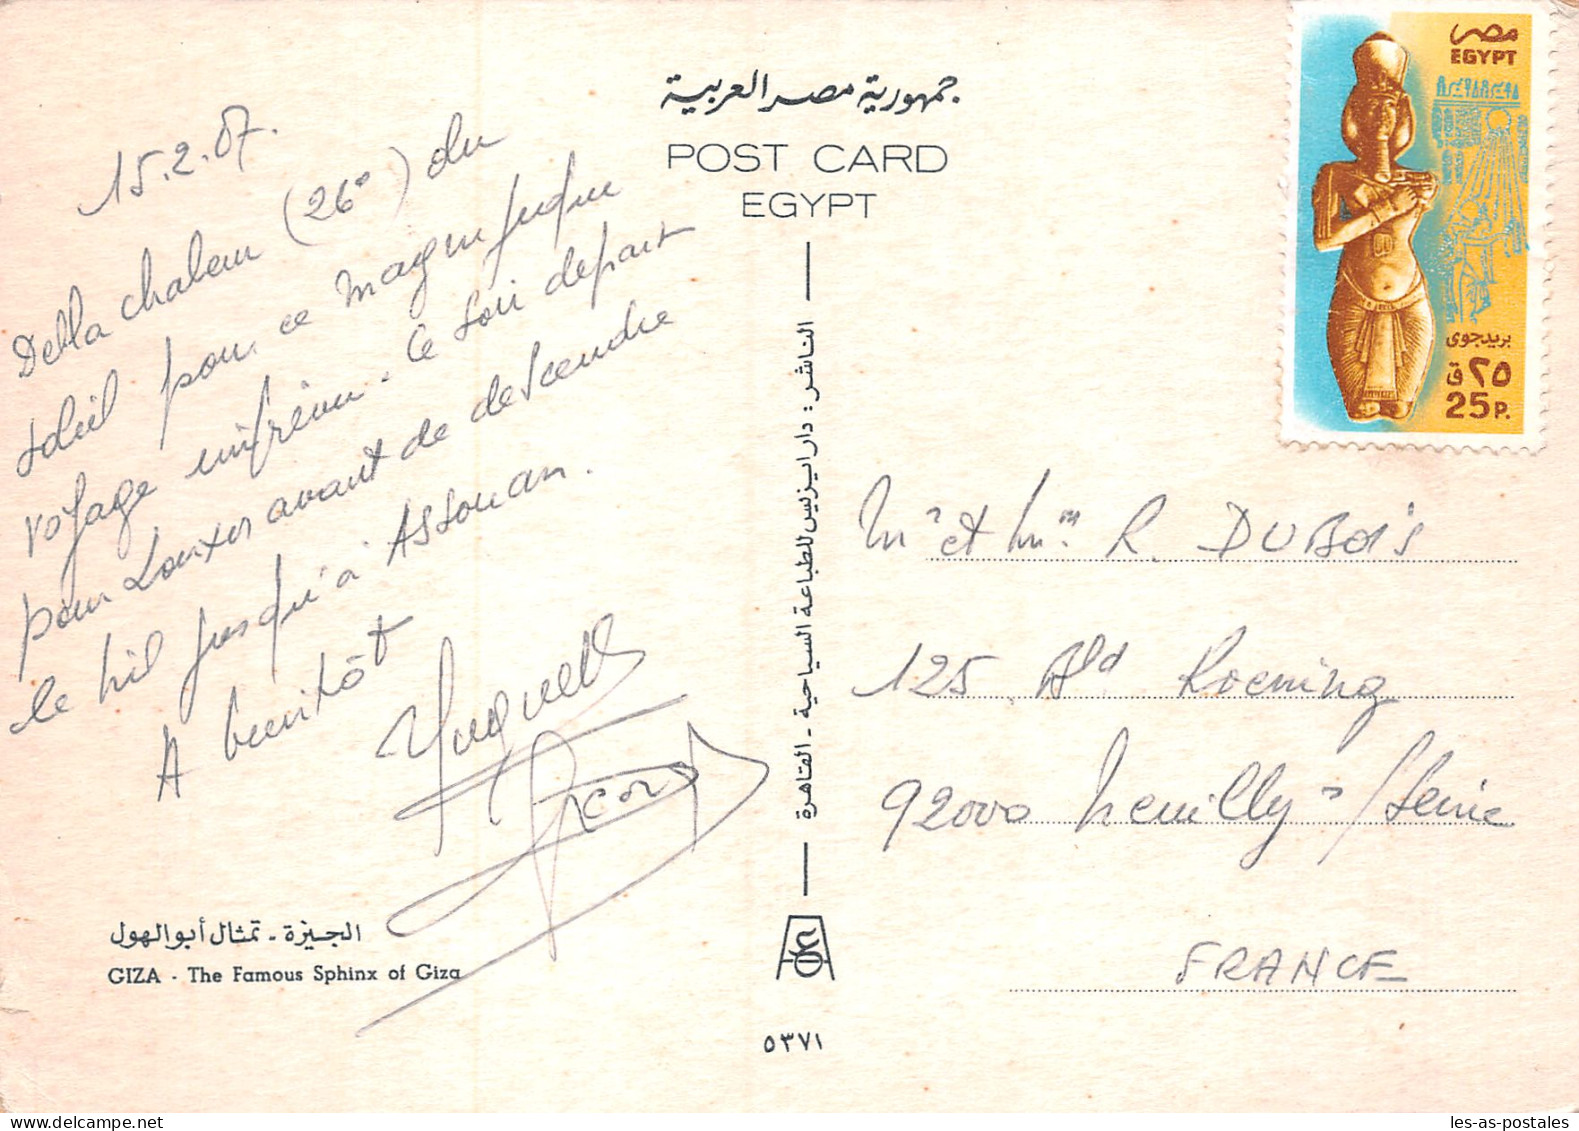 15.2.87.
De la chaleur (26°) du
soleil pour ce magnifique
voyage intérieur. Ce soir départ
pour Louxor avant de descendre
le Nil jusqu'à Assouan.
A bientôt
Huguette
الجيزة - تمثال أبو الهول
GIZA - The Famous Sphinx of Giza
جمهورية مصر العربية
POST CARD
EGYPT
الناشر : دار ايزيس للطباعة السياحية - القاهرة
٥٣٧١
مصر
EGYPT
بريد جوى
٢٥ ق
25 P.
Mr et Mme R. DUBOIS
125 Bld Koening
92000 Neuilly s/Seine
FRANCE
les-as-postales